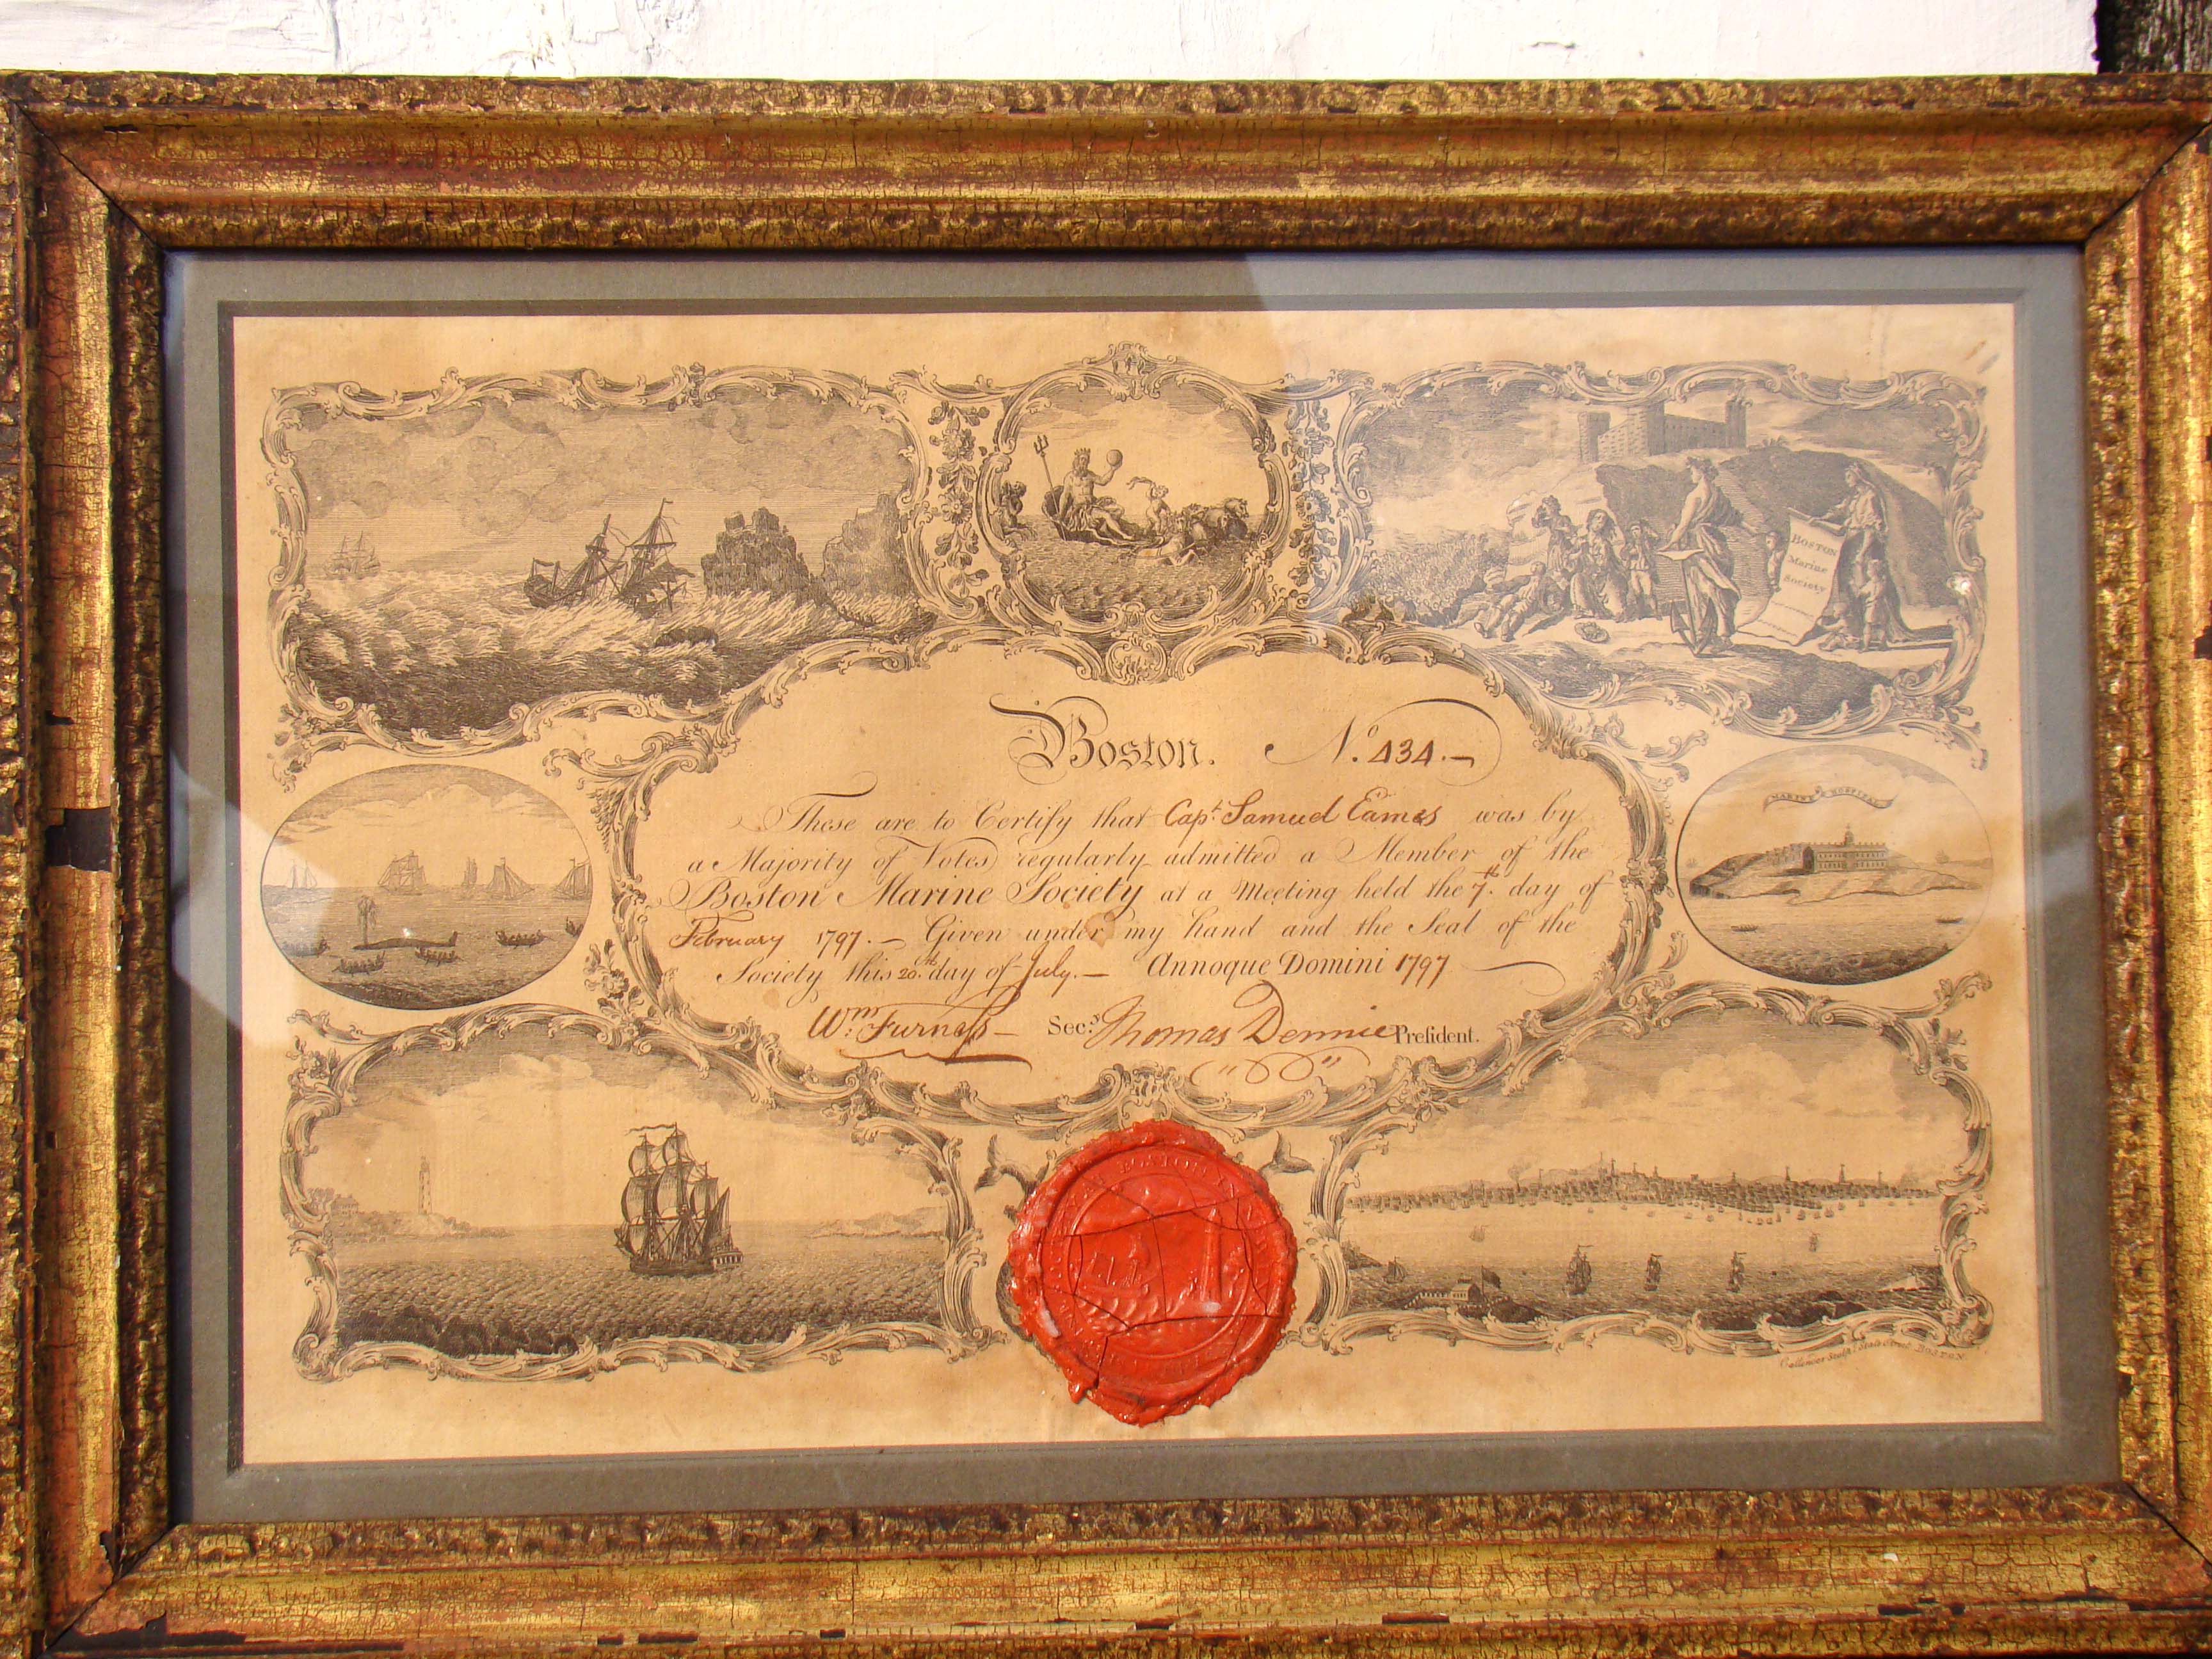 BOSTON
Marine
Society
Boston. No. 434.—
MARINE HOSPITAL
These are to Certify that Capt. Samuel Eames was by
a Majority of Votes regularly admitted a Member of the
Boston Marine Society at a Meeting held the 7th. day of
February 1797.— Given under my hand and the Seal of the
Society this 20.th day of July.— Annoque Domini 1797
Wm. Furneſs— Secy. Thomas Dennie Preſident.
BOSTON
Callender Sculpt. State Street BOSTON